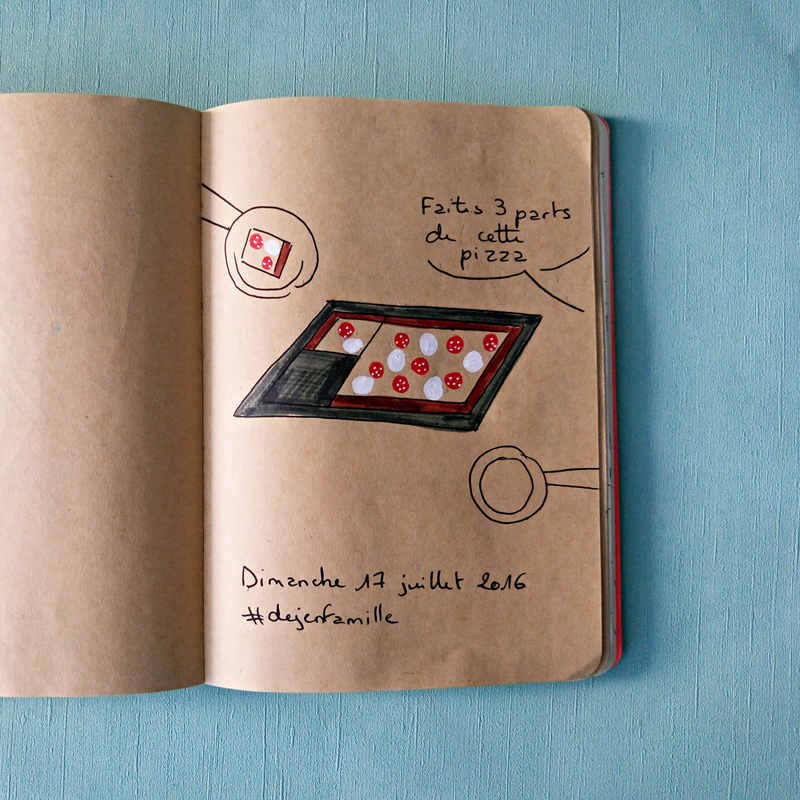 Faites 3 parts
de cette
pizza
Dimanche 17 juillet 2016
#dejenfamille